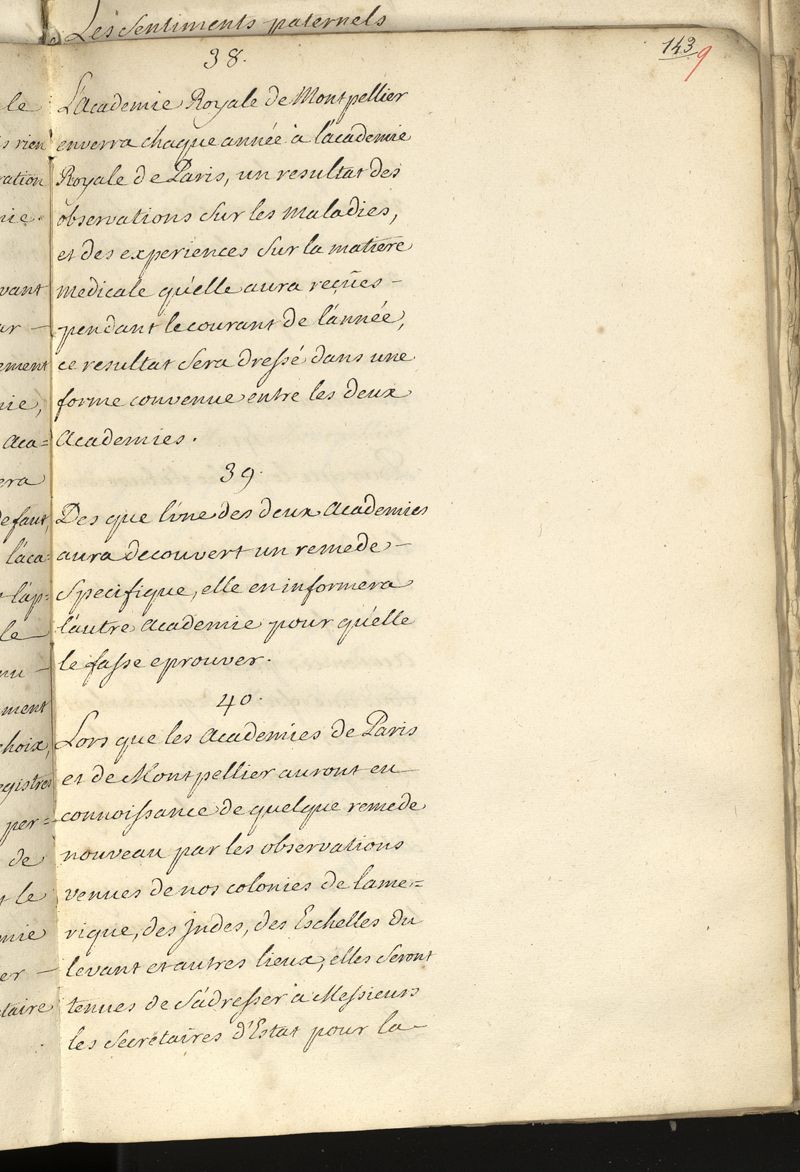 Les sentiments paternels
143
9
38.
L'academie Royale de Montpellier
enverra chaque année à l'academie
Royale de Paris, un resultat des
observations sur les maladies,
et des experiences sur la matiere
medicale qu'elle aura reçües -
pendant le courant de l'année,
ce resultat sera dressé dans une
forme convenue entre les deux
academies.
39.
Des que l'une des deux academies
aura decouvert un remede -
specifique, elle en informera
l'autre academie pour qu'elle
le fasse eprouver.
40.
Lors que les academies de Paris
et de Montpellier auront eu
connoissance de quelque remede
nouveau par les observations
venues de nos colonies de lame=
rique, des Jndes, des Eschelles du
levant et autres lieux, elles seront
tenues de s'adresser à Messieurs
les secretaires d'Estat pour la -
le
s rien
ration
nie.
vant
ar -
ement
nie,
aca=
era
defaut,
l'aca=
l'ap=
le
nu -
ment
choix,
egistres
per=
de
t le
mie
er -
taire